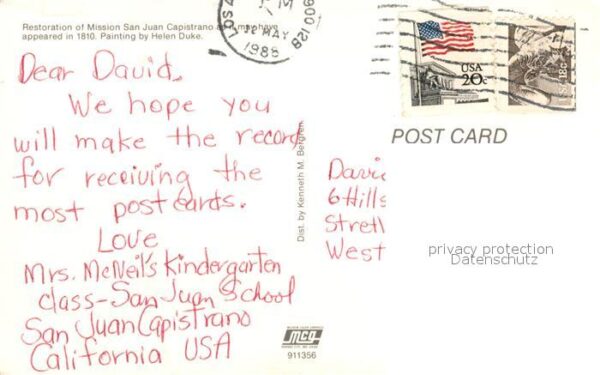 Restoration of Mission San Juan Capistrano as it may have
appeared in 1810. Painting by Helen Duke.
Dear David,
We hope you
will make the record
for receiving the
most postcards.
Love
Mrs. McNeil's Kindergarten
class-San Juan School
San Juan Capistrano
California USA
Dist. by Kenneth M. Bergren
LOS A
PM
12 MAY
1988
900 128
USA
20c
USA 18c
POST CARD
David
6 Hills
Stretl
West
privacy protection
Datenschutz
MCO
911356